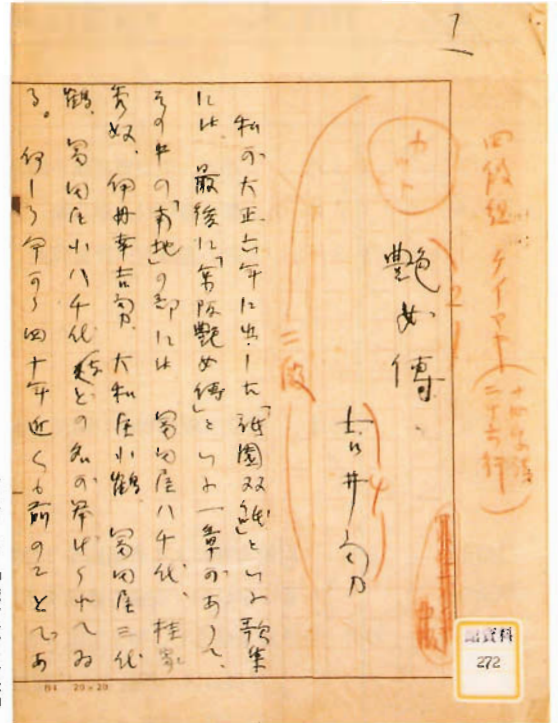 1
四段組
十四字詰
二十六行
カット
艷女傳、
吉井勇
二段
私が大正六年に出した「祇園双紙」といふ歌集
には、最後に「京阪艷女傳」といふ一章があつて、
その中の「南地」の部には、富田屋八千代、桂家
秀奴、伊丹幸吉勇、大和屋小鶴、富田屋三代
鶴、富田屋小八千代などの名が挙げられてゐ
る。何しろ今から四十年近くも前のことであ
B4 20×20
館資料
272